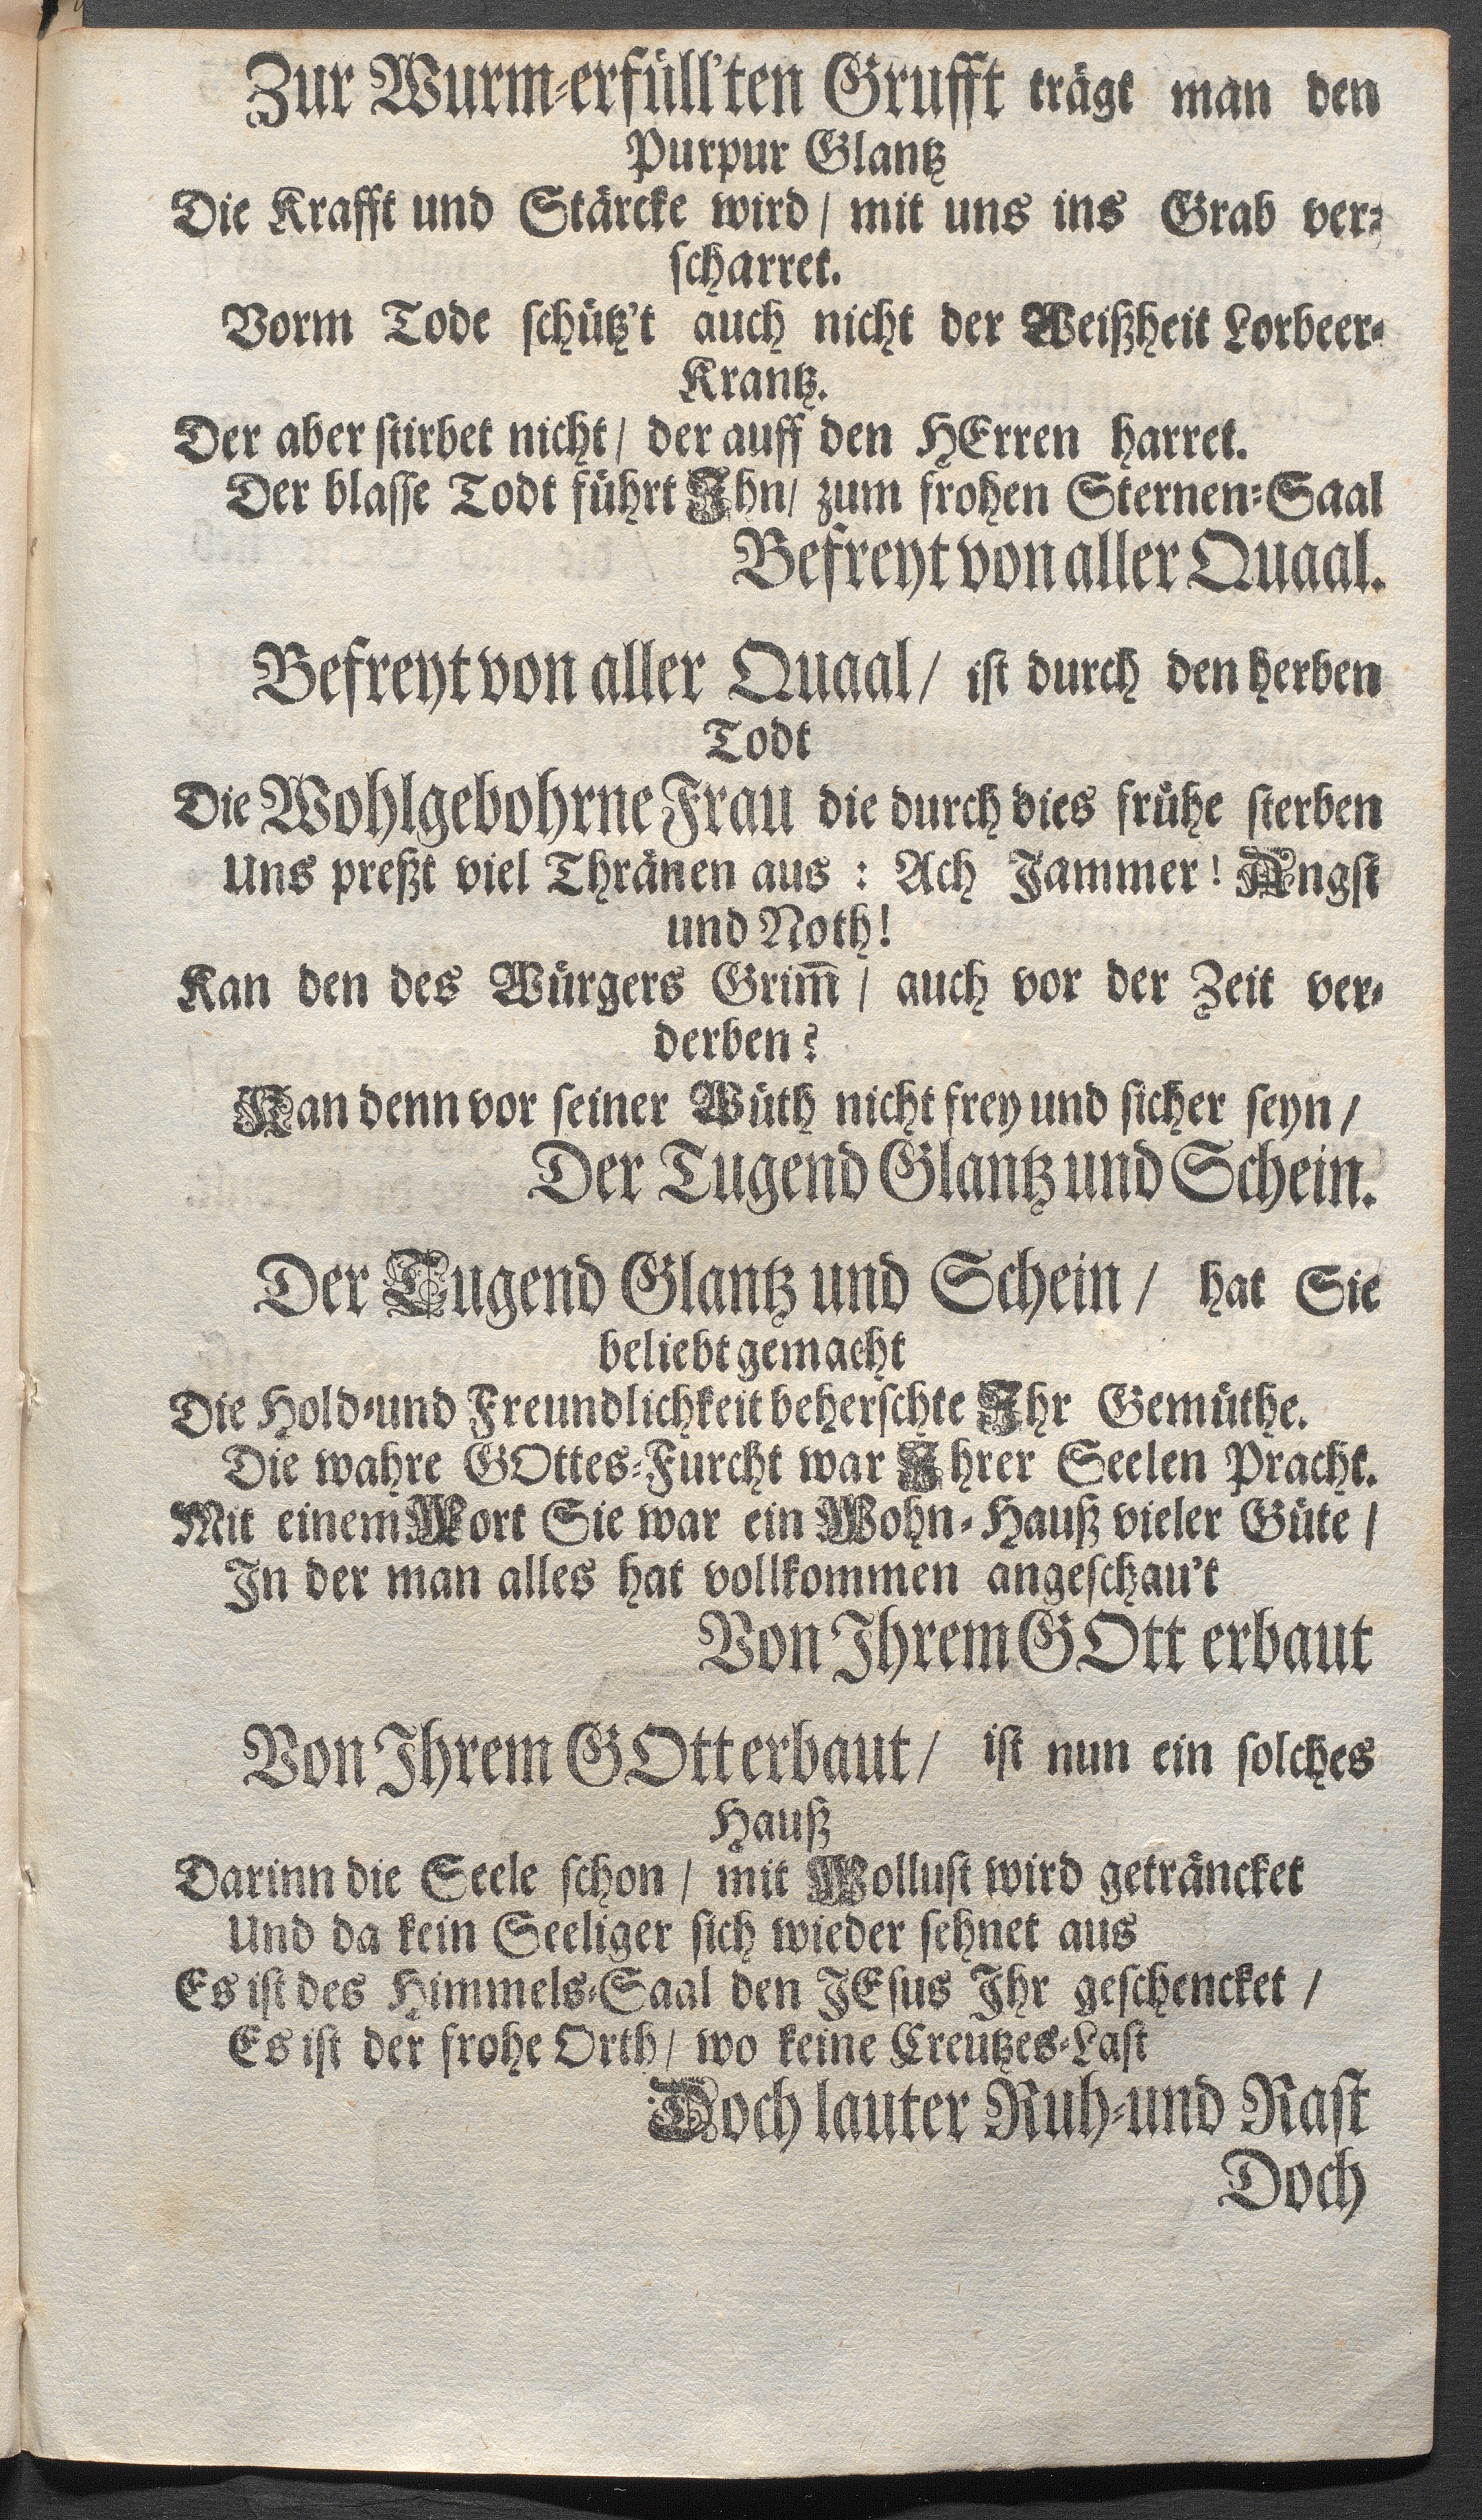 Zur Wurm-erfüll'ten Grufft trägt man den
Purpur Glantz
Die Krafft und Stärcke wird / mit uns ins Grab ver-
scharret.
Vorm Tode schütz't auch nicht der Weißheit Lorbeer-
Krantz.
Der aber stirbet nicht / der auff den HErren harret.
Der blasse Todt führt Ihn / zum frohen Sternen-Saal
Befreyt von aller Quaal.
Befreyt von aller Quaal / ist durch den herben
Todt
Die Wohlgebohrne Frau die durch dies frühe sterben
Uns preßt viel Thränen aus : Ach Jammer! Angst
und Noth!
Kan den des Würgers Grim̅ / auch vor der Zeit ver-
derben?
Kan denn vor seiner Wüth nicht frey und sicher seyn /
Der Tugend Glantz und Schein.
Der Tugend Glantz und Schein / hat Sie
beliebt gemacht
Die Hold-und Freundlichkeit beherschte Ihr Gemüthe.
Die wahre GOttes-Furcht war Ihrer Seelen Pracht.
Mit einem Wort Sie war ein Wohn-Hauß vieler Güte /
In der man alles hat vollkommen angeschau't
Von Ihrem GOtt erbaut
Von Ihrem GOtt erbaut / ist nun ein solches
Hauß
Darinn die Seele schon / mit Wollust wird geträncket
Und da kein Seeliger sich wieder sehnet aus
Es ist des Himmels-Saal den JEsus Ihr geschencket /
Es ist der frohe Orth / wo keine Creutzes-Last
Doch lauter Ruh-und Rast
Doch